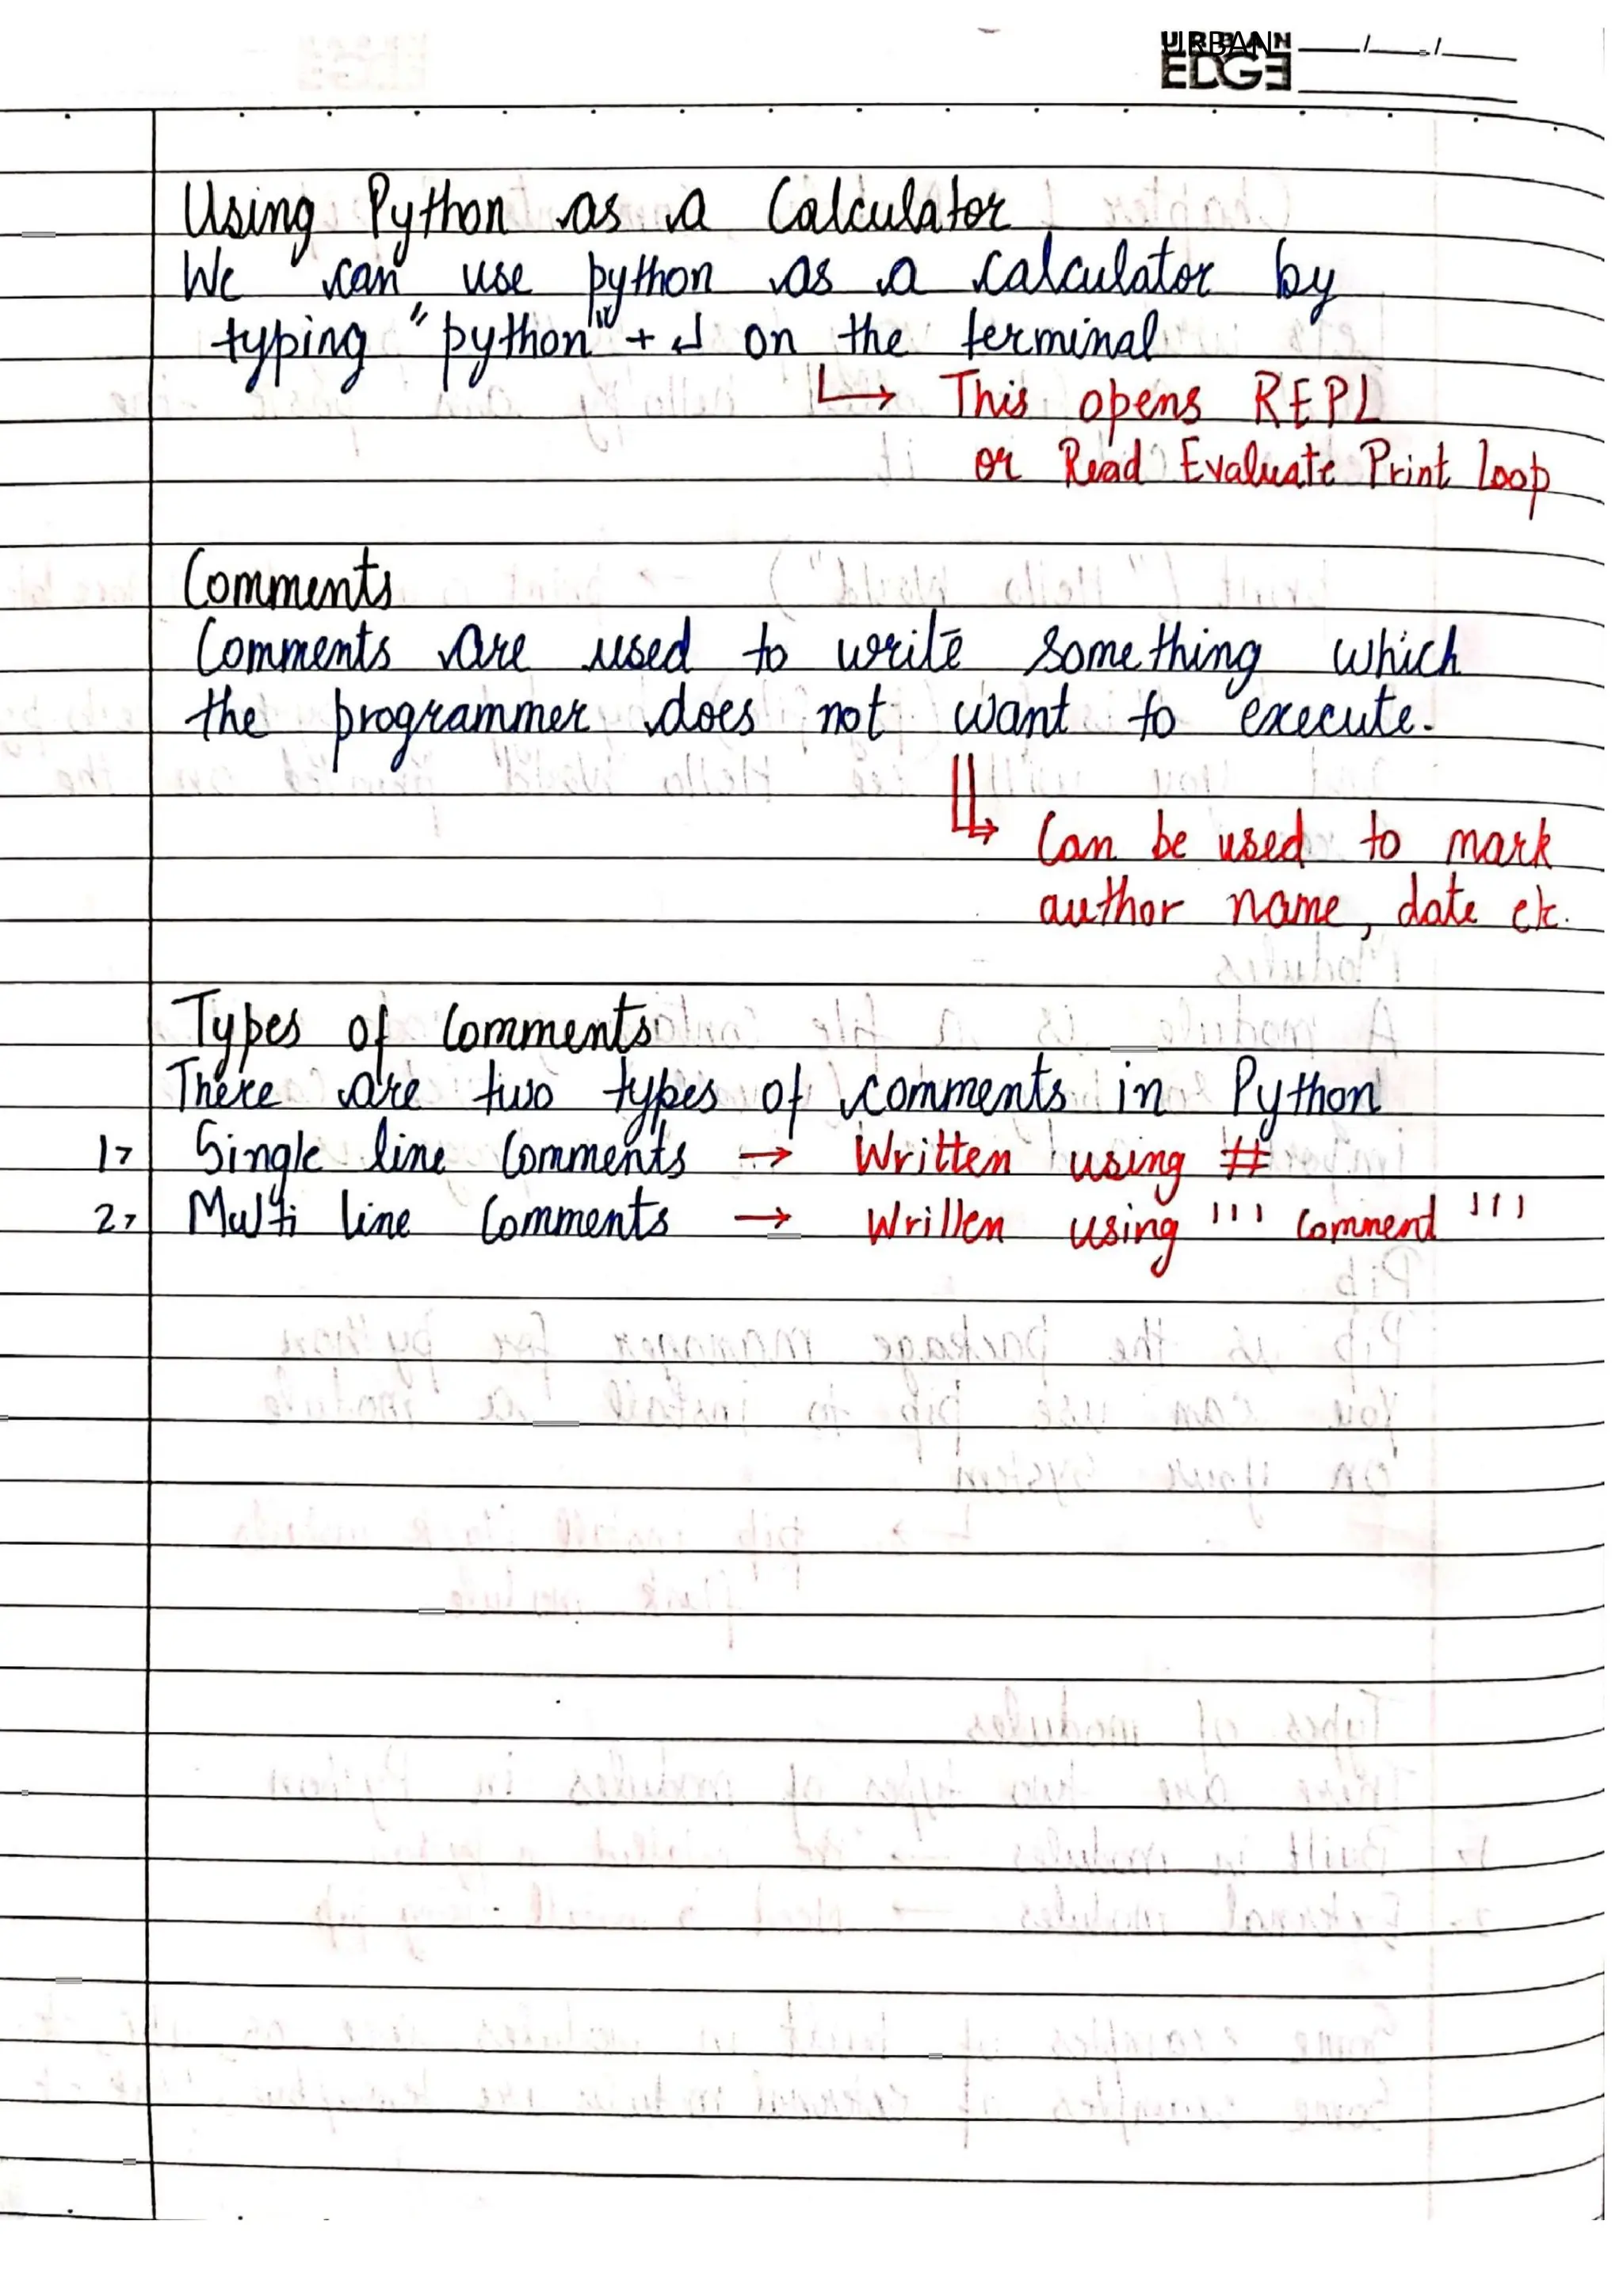 URBAN
EDGE
Using Python as a Calculator
We can use python as a calculator by
typing "python" + ↵ on the terminal
↳ This opens REPL
or Read Evaluate Print Loop
Comments
Comments are used to write something which
the programmer does not want to execute.
↳ Can be used to mark
author name, date etc.
Types of Comments
There are two types of comments in Python
1> Single line Comments → Written using #
2> Multi line Comments → Written using ''' Comment '''